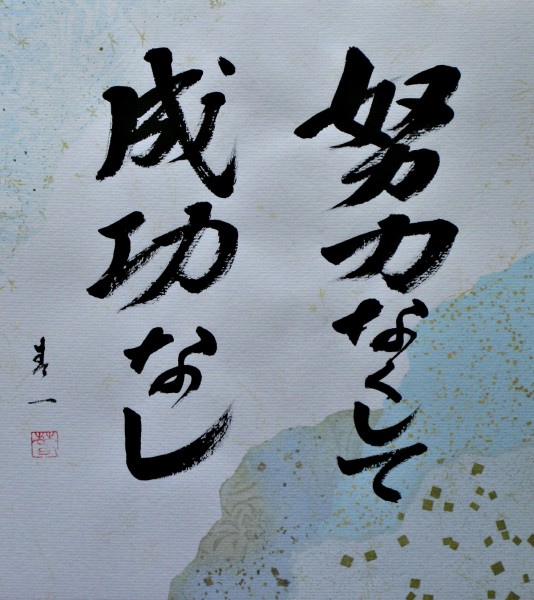 努力なくして
成功なし
春一